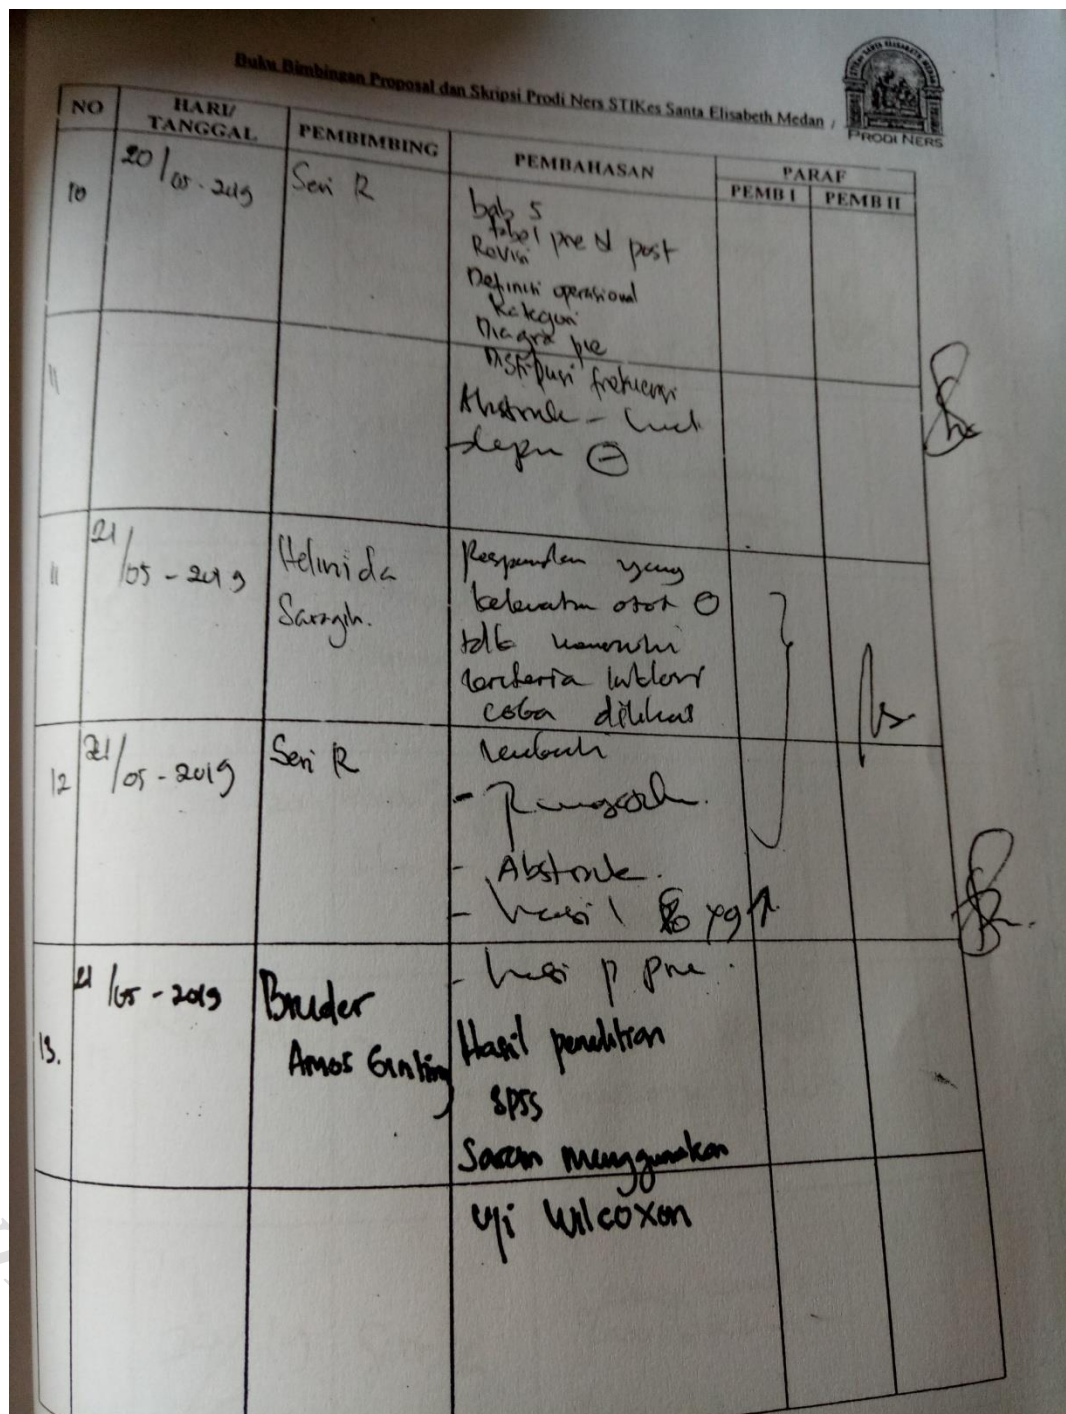 Buku Bimbingan Proposal dan Skripsi Prodi Ners STIKes Santa Elisabeth Medan
PRODI NERS
NO HARI/ TANGGAL PEMBIMBING PEMBAHASAN PARAF
PEMB I PEMB II
10 20/05-2019 Seri R bab 5
tabel pre & post
Revisi
Definisi operasional
Kategori
Diagra pie
11 Distribusi frekuensi
Abstrak -
⊖
11 21/05-2019 Helinida Responden yang
Saragih. otot ⊖
tdk
kriteria inklusi
coba dilihat
12 21/05-2019 Seri R
-
- Abstrak.
- hasil yg
- p pre.
13. 21/05-2019 Bruder
Amos Ginting Hasil penelitian
SPSS
Saran menggunakan
uji Wilcoxon